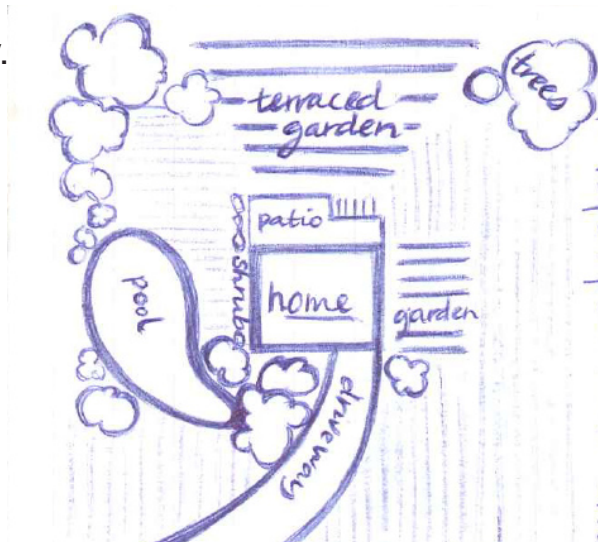 terraced
garden
trees
patio
pool
shrubs
home
garden
driveway